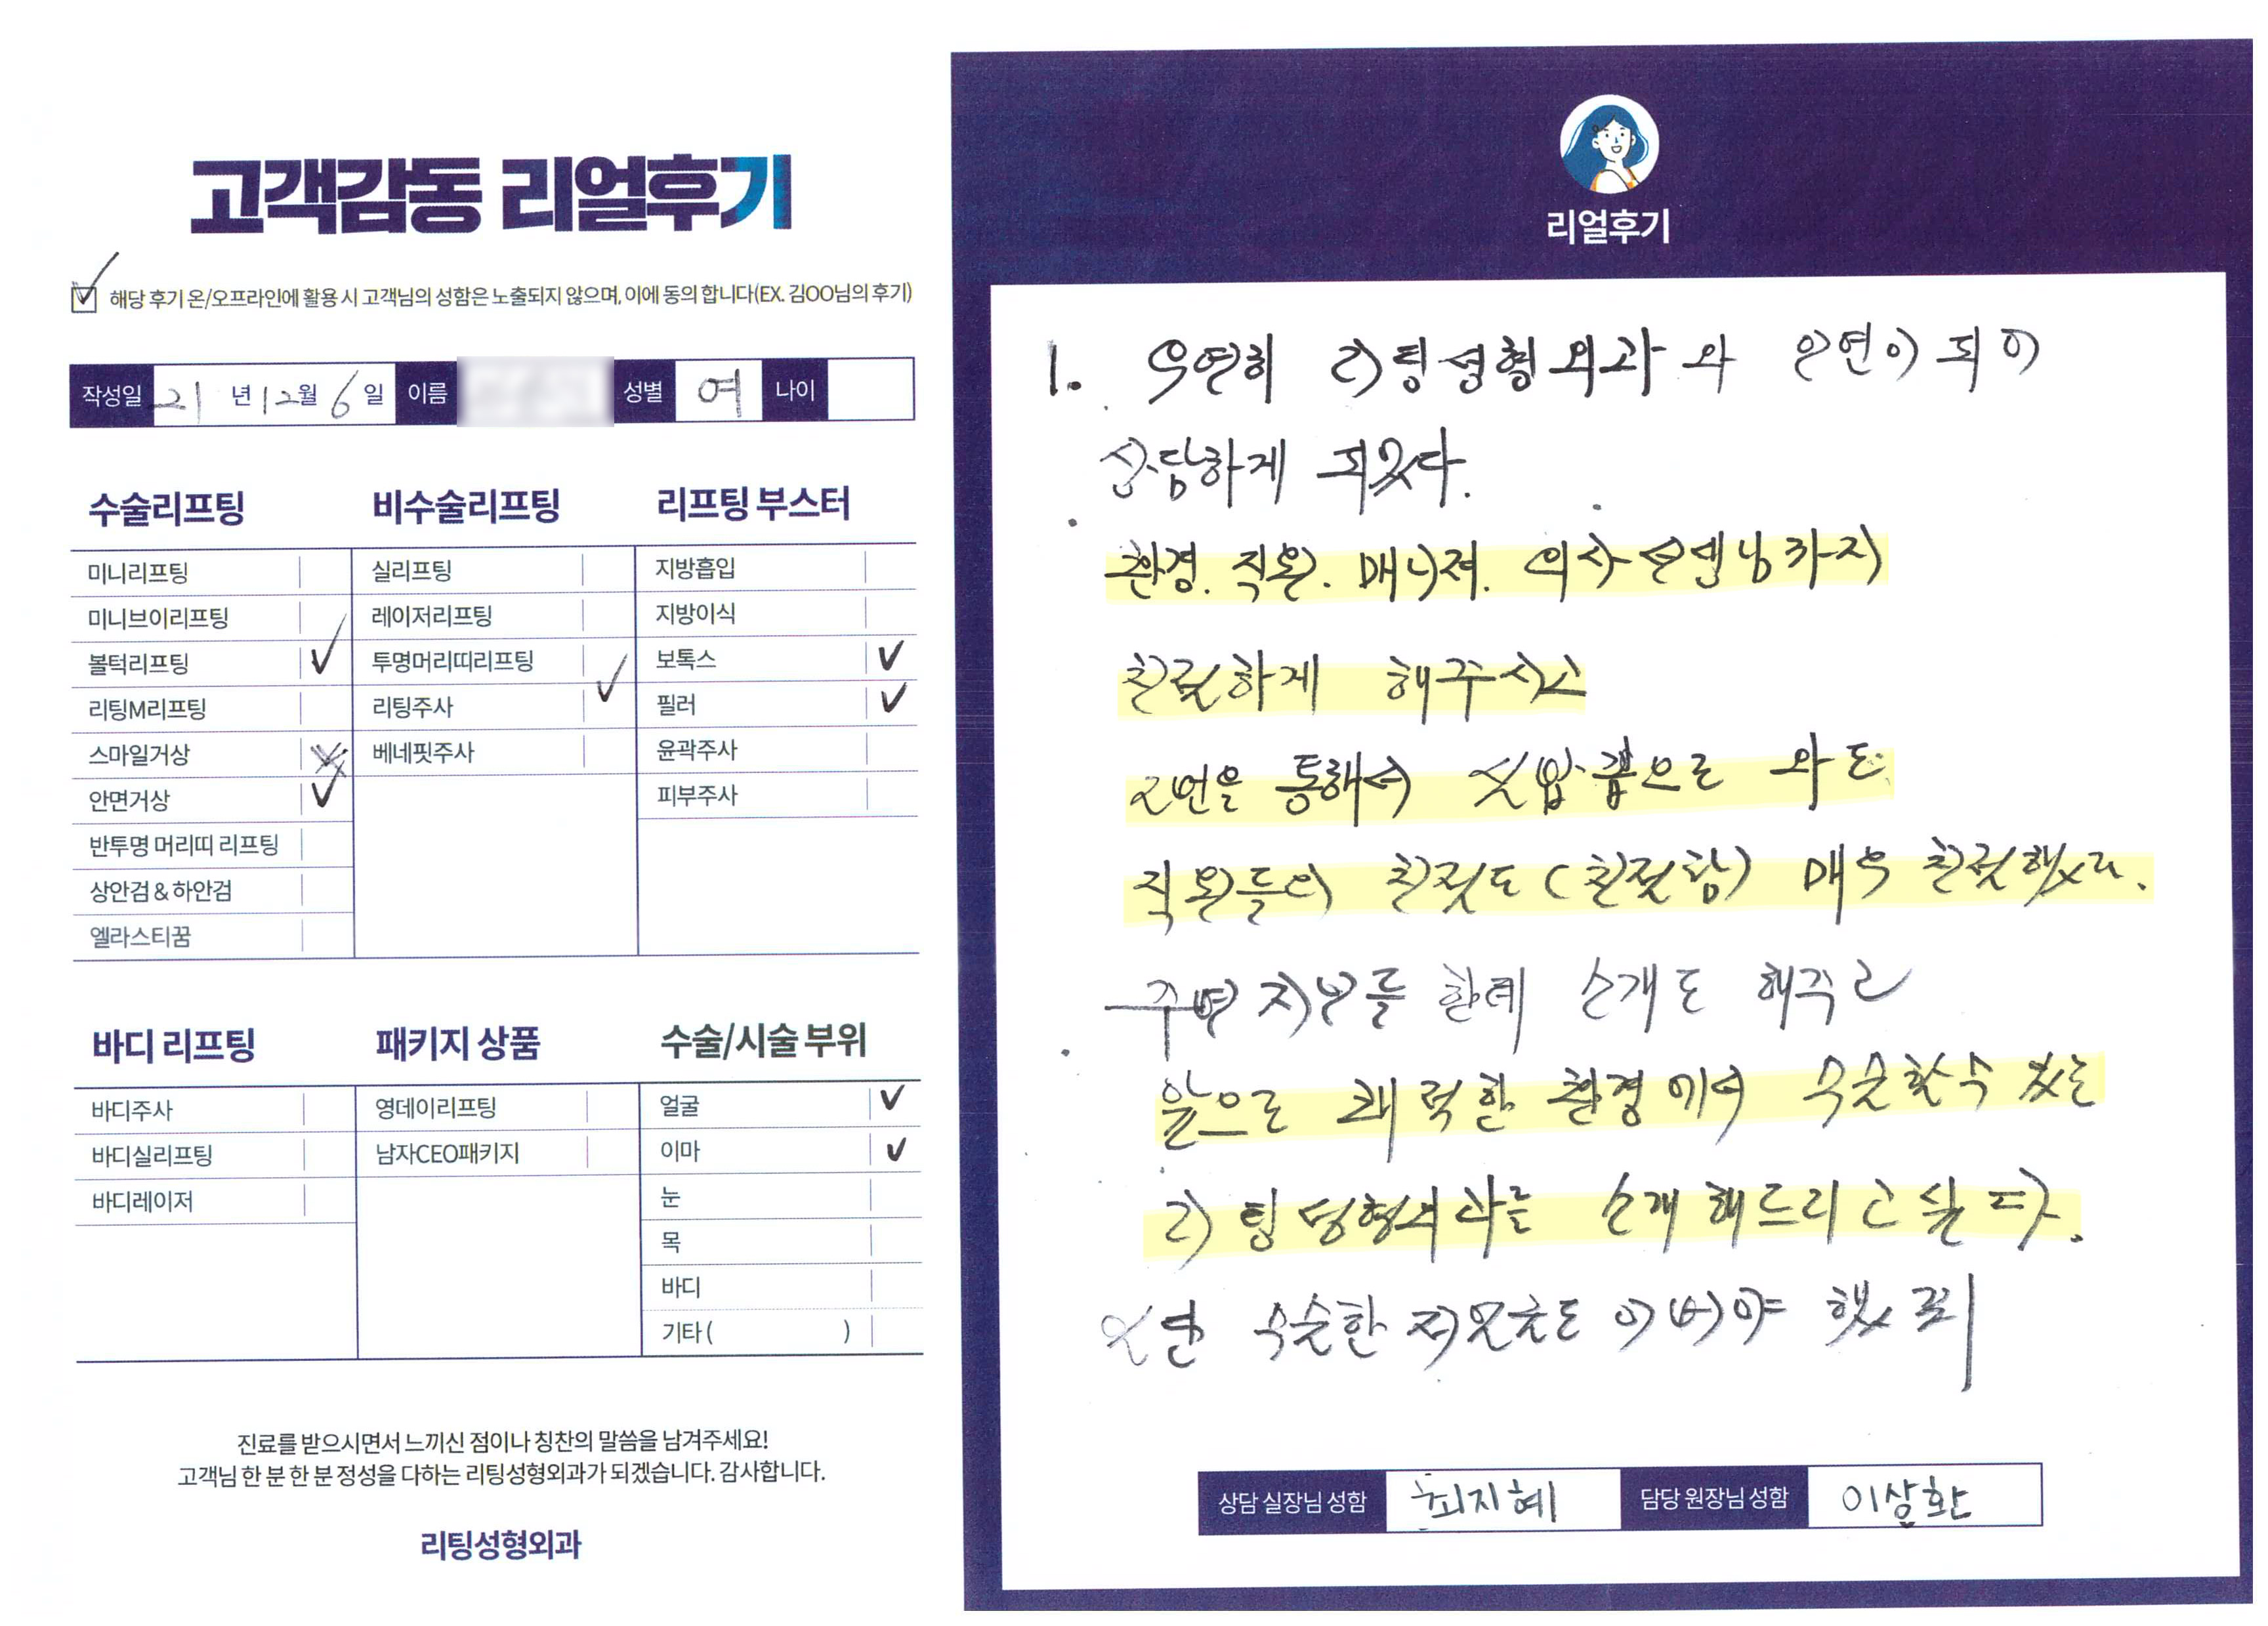 고객감동 리얼후기
해당 후기 온/오프라인에 활용 시 고객님의 성함은 노출되지 않으며, 이에 동의 합니다(EX. 김OO님의 후기)
작성일 21 년 12월 6 일 이름 성별 여 나이
수술리프팅
미니리프팅
미니브이리프팅
볼턱리프팅
리팅M리프팅
스마일거상
안면거상
반투명 머리띠 리프팅
상안검 & 하안검
엘라스티꿈
비수술리프팅
실리프팅
레이저리프팅
투명머리띠리프팅
리팅주사
베네핏주사
리프팅 부스터
지방흡입
지방이식
보톡스
필러
윤곽주사
피부주사
바디 리프팅
바디주사
바디실리프팅
바디레이저
패키지 상품
영데이리프팅
남자CEO패키지
수술/시술 부위
얼굴
이마
눈
목
바디
기타 ( )
진료를 받으시면서 느끼신 점이나 칭찬의 말씀을 남겨주세요!
고객님 한 분 한 분 정성을 다하는 리팅성형외과가 되겠습니다. 감사합니다.
리팅성형외과
리얼후기
1. 우연히 리팅성형외과와 인연이 되어
상담하게 되었다.
환경. 직원. 매니저. 의사선생님까지
친절하게 해주시고
2번을 통해서 와도
직원들의 친절도 (친절함) 매우 친절했다.
주변 지인들 한테 소개도 해주고
앞으로 쾌적한 환경에서 수술할수 있는
리팅성형외과를 소개해드리고 싶다.
수술한
상담 실장님 성함 최지혜 담당 원장님 성함 이상환